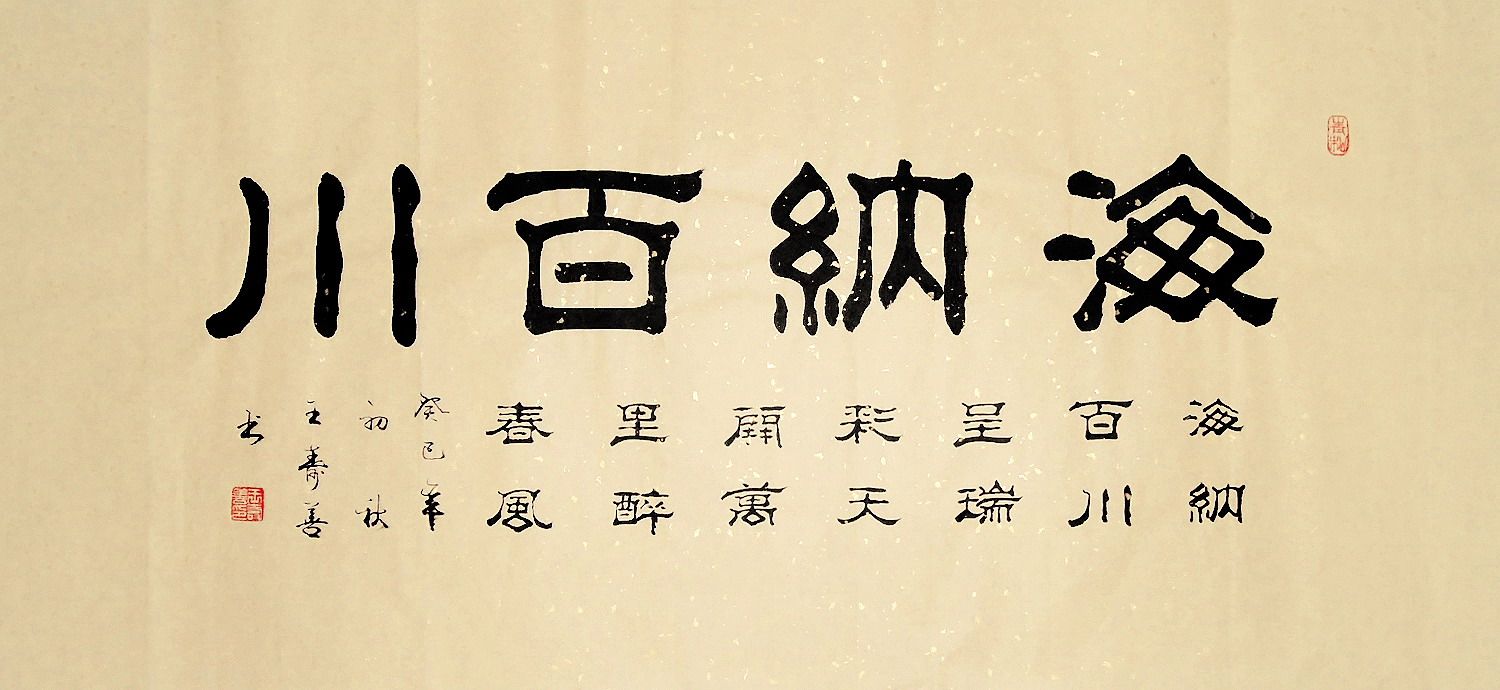 海納百川
海納
百川
呈瑞
彩天
開萬
里醉
春風
癸巳年
初秋
王壽善
书